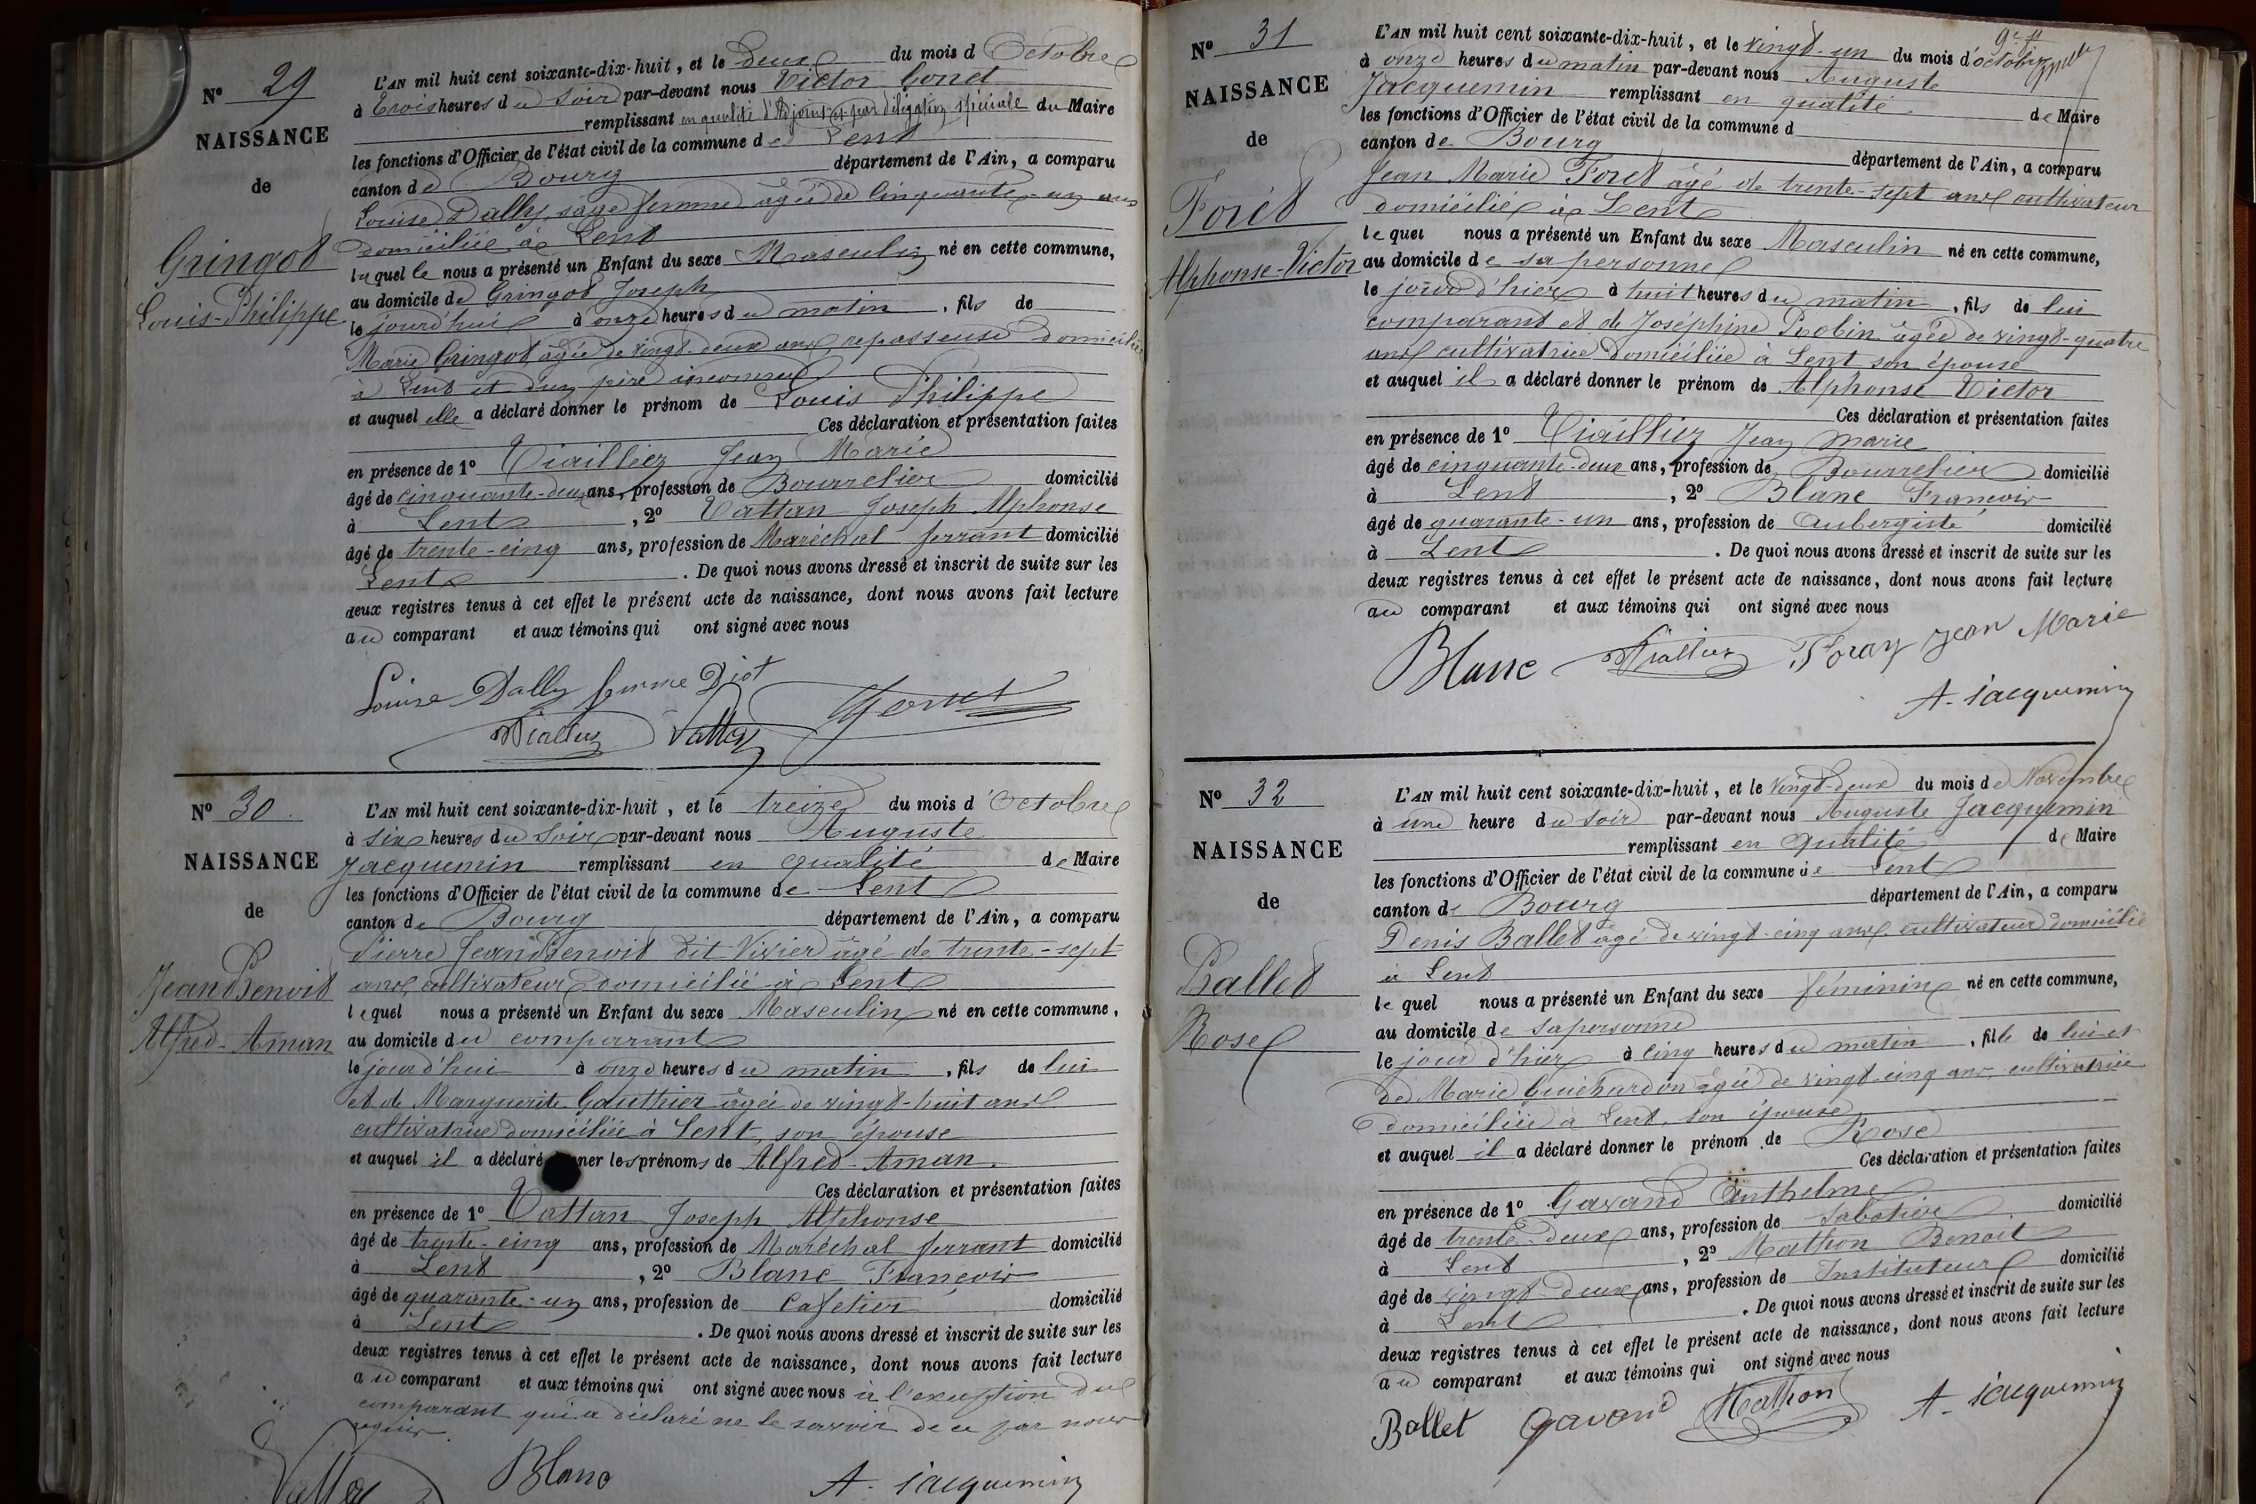 N° 29
NAISSANCE
de
Gringot
Louis-Philippe
L'AN mil huit cent soixante-dix-huit, et le Deux du mois d'Octobre
à Trois heures du Soir par-devant nous Victor Gonet
remplissant en qualité d'Adjoint et par délégation spéciale du Maire
les fonctions d'Officier de l'état civil de la commune de Lent
canton de Bourg département de l'Ain, a comparu
Louise Dally sage femme âgée de Cinquante-un ans
domiciliée à Lent
laquelle nous a présenté un Enfant du sexe Masculin né en cette commune,
au domicile de Gringot Joseph
le jourd'hui à onze heures du matin, fils de
Marie Gringot âgée de vingt-deux ans repasseuse domiciliée
à Lent et d'un père inconnu
et auquel elle a déclaré donner le prénom de Louis Philippe
Ces déclaration et présentation faites
en présence de 1° Viallier Jean Marie
âgé de cinquante-deux ans, profession de Bourrelier domicilié
à Lent, 2° Vattan Joseph Alphonse
âgé de trente-cinq ans, profession de Maréchal ferrant domicilié
Lent. De quoi nous avons dressé et inscrit de suite sur les
deux registres tenus à cet effet le présent acte de naissance, dont nous avons fait lecture
au comparant et aux témoins qui ont signé avec nous
Louise Dally femme Diot
Viallier Vattan Gonet
N° 30
NAISSANCE
de
Jean Benoit
Alfred-Aman
L'AN mil huit cent soixante-dix-huit, et le treize du mois d'Octobre
à six heures du Soir par-devant nous Auguste
Jacquemin remplissant en qualité de Maire
les fonctions d'Officier de l'état civil de la commune de Lent
canton de Bourg département de l'Ain, a comparu
Pierre Jean Benoit dit Vivier âgé de trente-sept
ans, cultivateur domicilié à Lent
lequel nous a présenté un Enfant du sexe Masculin né en cette commune,
au domicile du comparant
le jourd'hui à onze heures du matin, fils de lui
et de Marguerite Gauthier âgée de vingt-huit ans
cultivatrice domiciliée à Lent, son épouse
et auquel il a déclaré ner les prénoms de Alfred-Aman.
Ces déclaration et présentation faites
en présence de 1° Vattan Joseph Alphonse
âgé de trente-cinq ans, profession de Maréchal ferrant domicilié
à Lent, 2° Blanc François
âgé de quarante-un ans, profession de Cafetier domicilié
à Lent. De quoi nous avons dressé et inscrit de suite sur les
deux registres tenus à cet effet le présent acte de naissance, dont nous avons fait lecture
au comparant et aux témoins qui ont signé avec nous à l'exception du
comparant qui a déclaré ne le savoir de ce par nous
requis.
Vattan Blanc A. Jacquemin
N° 31
NAISSANCE
de
Foret
Alphonse-Victor
L'AN mil huit cent soixante-dix-huit, et le vingt-un du mois d'octobre
à onze heures du matin par-devant nous Auguste
Jacquemin remplissant en qualité de Maire
les fonctions d'Officier de l'état civil de la commune d
canton de Bourg département de l'Ain, a comparu
Jean Marie Foret âgé de trente-sept ans cultivateur
domicilié à Lent
lequel nous a présenté un Enfant du sexe Masculin né en cette commune,
au domicile de sa personne
le jour d'hier à huit heures du matin, fils de lui
comparant et de Joséphine Robin âgée de vingt-quatre
ans cultivatrice domiciliée à Lent son épouse
et auquel il a déclaré donner le prénom de Alphonse Victor
Ces déclaration et présentation faites
en présence de 1° Viallier Jean Marie
âgé de cinquante-deux ans, profession de Bourrelier domicilié
à Lent, 2° Blanc François
âgé de quarante-un ans, profession de Aubergiste domicilié
à Lent. De quoi nous avons dressé et inscrit de suite sur les
deux registres tenus à cet effet le présent acte de naissance, dont nous avons fait lecture
au comparant et aux témoins qui ont signé avec nous
Blanc Viallier Foray Jean Marie
A. Jacquemin
N° 32
NAISSANCE
de
Ballet
Rose
L'AN mil huit cent soixante-dix-huit, et le Vingt-deux du mois de Novembre
à une heure du Soir par-devant nous Auguste Jacquemin
remplissant en qualité de Maire
les fonctions d'Officier de l'état civil de la commune de Lent
canton de Bourg département de l'Ain, a comparu
Denis Ballet âgé de vingt-cinq ans, cultivateur domicilié
à Lent
lequel nous a présenté un Enfant du sexe féminin né en cette commune,
au domicile de sa personne
le jour d'hier à cinq heures du matin, fille de lui et
de Marie Guichardon âgée de vingt-cinq ans, cultivatrice
domiciliée à Lent, son épouse
et auquel il a déclaré donner le prénom de Rose
Ces déclaration et présentation faites
en présence de 1° Gavand Anthelme
âgé de trente-deux ans, profession de Sabotier domicilié
à Lent, 2° Mathon Benoit
âgé de vingt-deux ans, profession de Instituteur domicilié
à Lent. De quoi nous avons dressé et inscrit de suite sur les
deux registres tenus à cet effet le présent acte de naissance, dont nous avons fait lecture
au comparant et aux témoins qui ont signé avec nous
Ballet Gavand Mathon A. Jacquemin